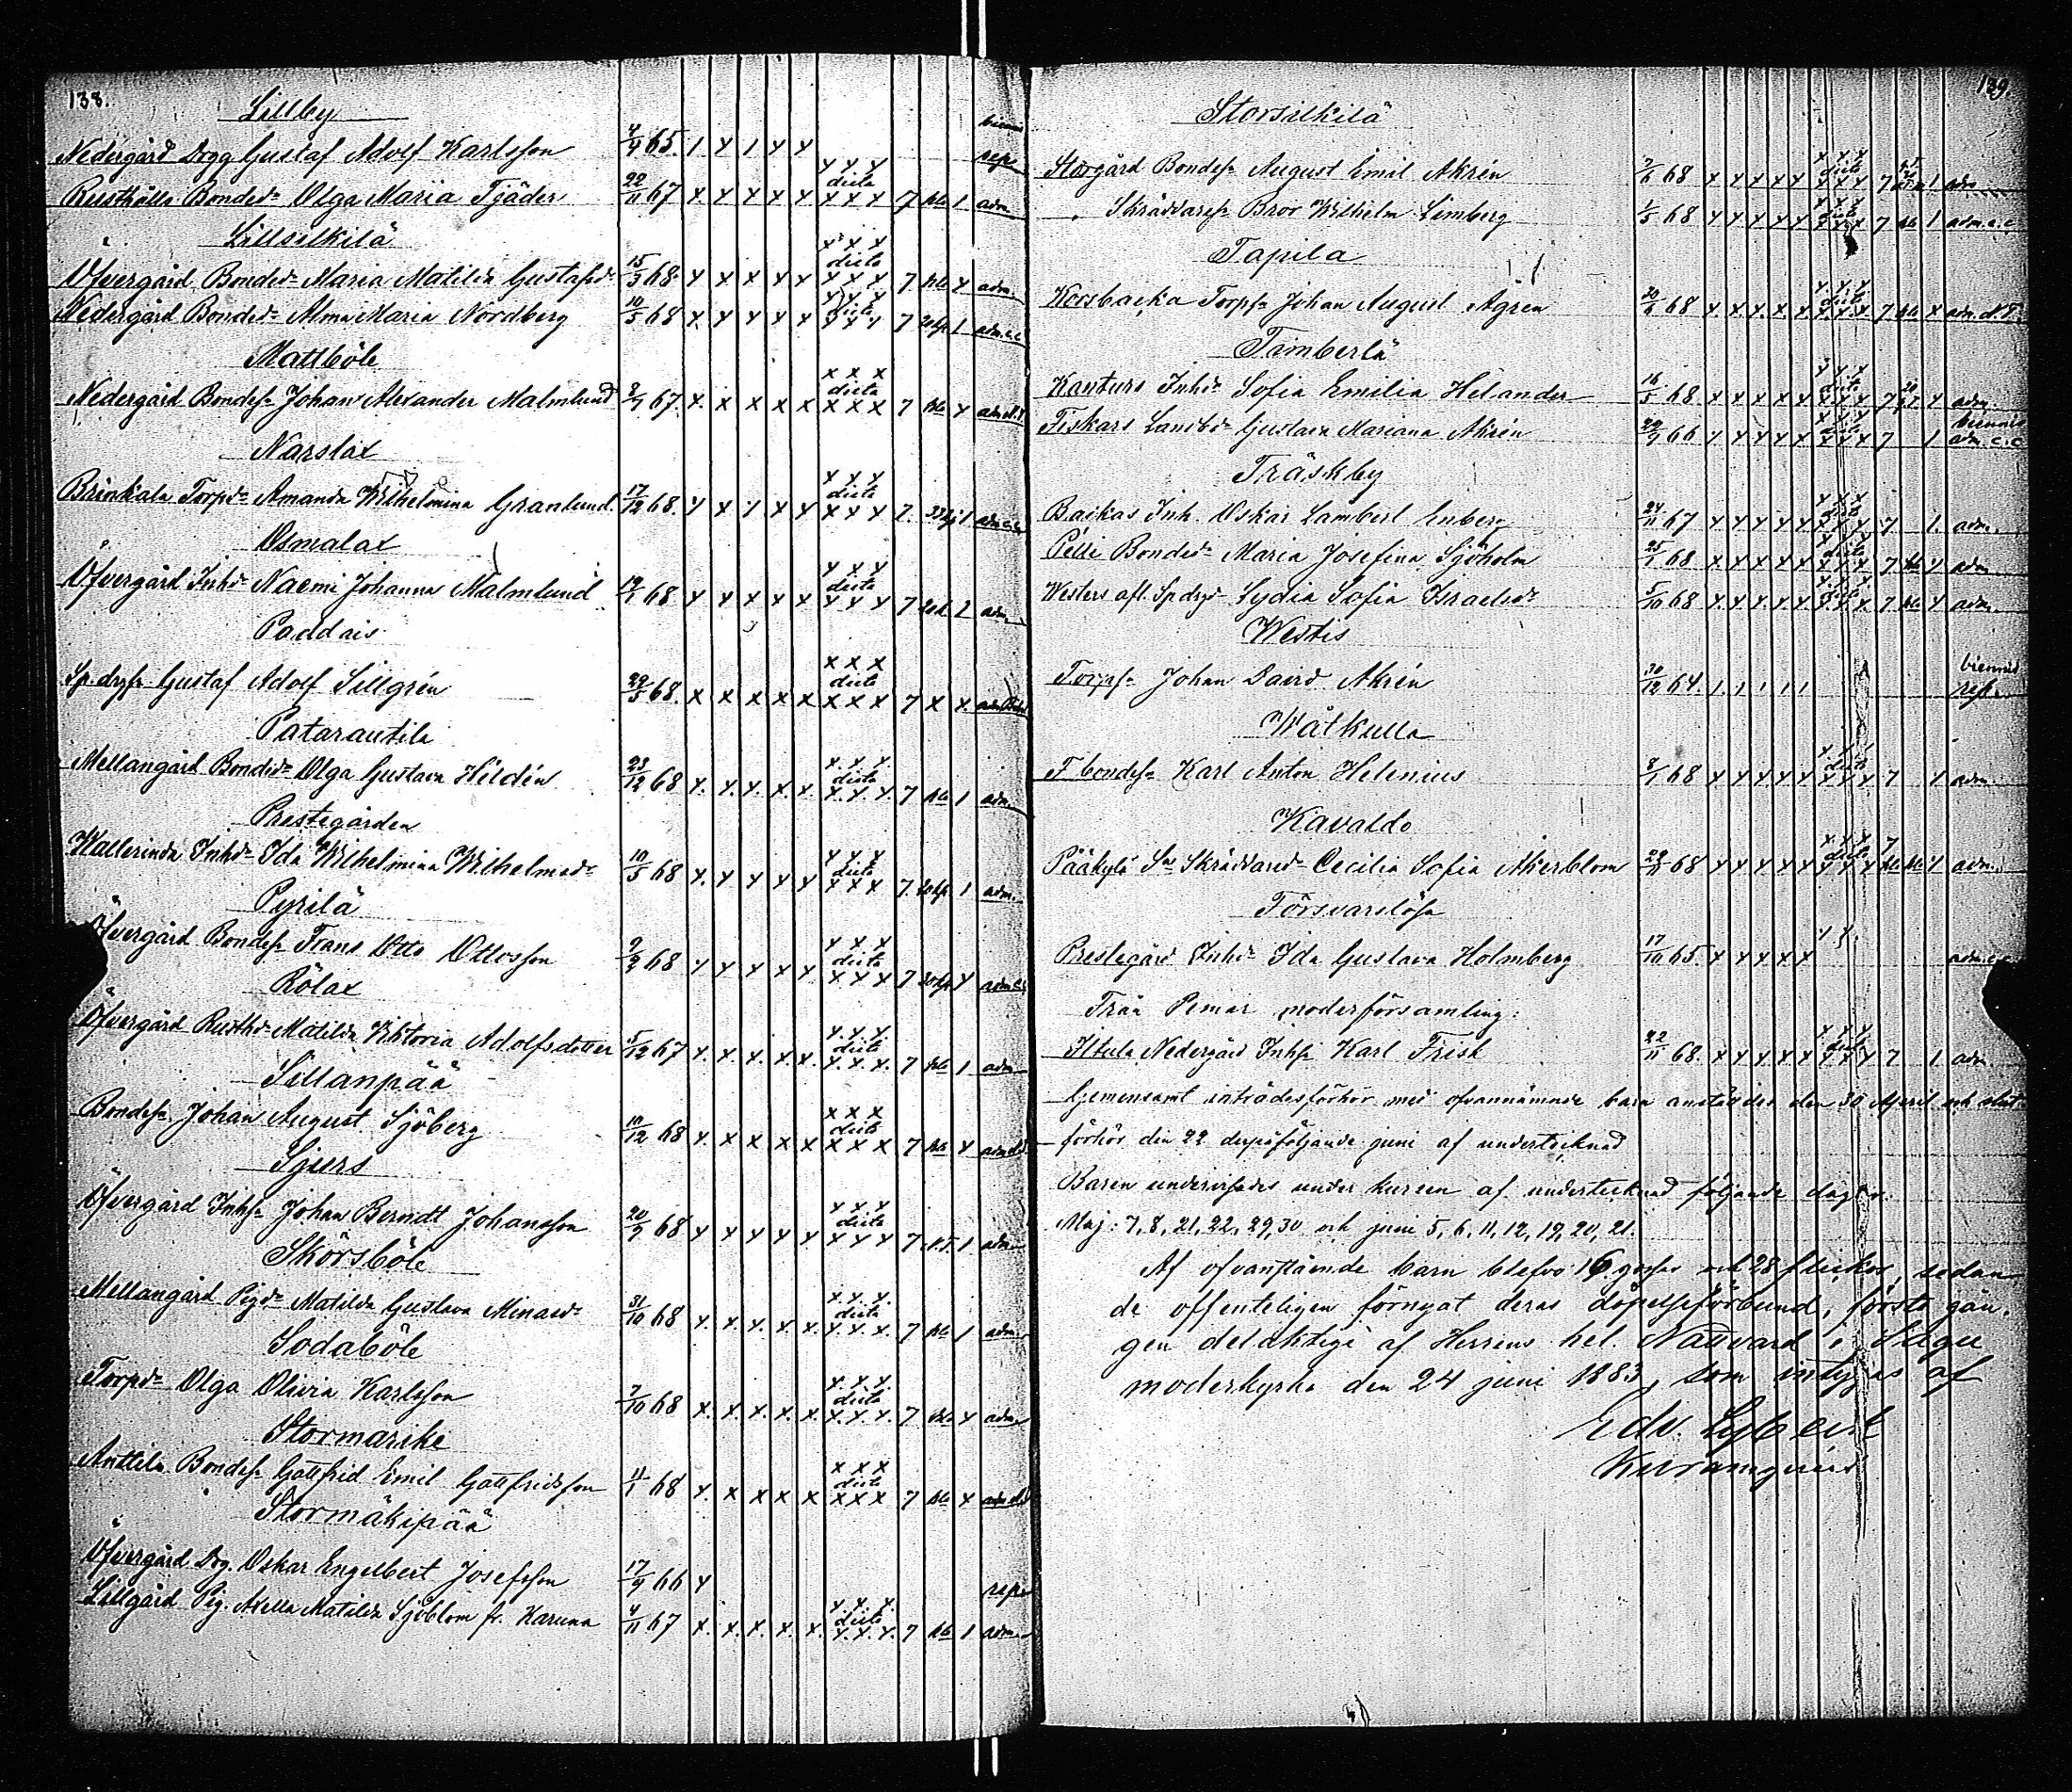 138.
Lillby
Nedergård Drgg Gustaf Adolf Karlsson 4/4 65. 1 x 1 x x rep.
Rusthålls Bonded. Olga Maria Tjäder 22/11 67 x x x x x x x x dicta x x x 7 1 adm.
Lillsilkilä
Öfvergård Bonded. Maria Matilda Gustafsd. 15/3 68. x x x x x x x x dicta x x x 7 x adm.
Nedergård Bonded. Alma Maria Nordberg 10/5 68 x x x x x x x x dicta x x x 7 1 adm. c.c.
Mattböle
Nedergård Bondes. Johan Alexander Malmlund 67. x x x x x x x x dicta x x x 7 x
Narslax
Brinkala Torpd. Amanda Wilhelmina Granlund. 17/12 68. x x x x x x x x dicta x x x 7. 1 adm c.c.
Osmalax
Öfvergård Inhd. Naemi Johanna Malmlund 68 x x x x x x x x dicta x x x 7 2 adm.
Paddais
Sp. drgs. Gustaf Adolf Sillgrén 29/5 68. x x x x x x x x dicta x x x 7 x x.
Patarautila
Mellangård Bonded. Olga Gustava Hildén 23/12 68 x. x. x. x. x. x x x dicta x. x. x. 7 1 adm.
Prestegården
Wallerinda Inhd. Ida Wilhelmina Wilhelmsd. 10/5 68 x. x x x x x x x dicta x x x 7. 1 adm.
Pyrilä
Öfvergård Bondes. Frans Otto Ottosson 9/2 68 x x x x x x x x dicta x x x 7 x adm c.c.
Rölax
Öfvergård Rusthd. Matilda Viktoria Adolfsdotter 5/12 67 x. x. x. x. x. x. x. x. dicta x. x. x. 7 1 adm.
Sillanpää
Bondes. Johan August Sjöberg 10/12 68 x. x x x x x x x dicta x x x 7 x
Sjurs
Öfvergård Inhs. Johan Berndt Johansson 20/9 68 x x x x x x x x dicta x x x 7 1 adm.
Skörsböle
Mellangård Pigd. Matilda Gustava Minasd. 31/10 68 x. x. x. x. x. x. x. x. dicta x. x. x. 7 1 adm.
Sodaböle
Torpd. Olga Olivia Karlsson 7/10 68 x. x. x. x. x. x. x. x. dicta x. x. x. 7 x adm.
Stormarike
Anttila Bondes. Gottfrid Emil Gottfridsson 11/1 68 x. x x x x x x x dicta x x x 7 x
Stormäkipää
Öfvergård Drg. Oskar Engelbert Josefsson 17/9 66 x rep.
Lillgård Pig. Matilda Sjöblom fr. Karuna 4/11 67 x. x. x. x. x. x. x. x. dicta x. x. x. 7 1 adm.
139.
Storsilkilä
Storgård Bondes. August Emil Akrén 7/6 68 x x x x x x x x dicta x x x 7 1 adm.
Skräddares. Bror Wilhelm Limberg 1/5 68 x x x x x x x x dicta x x x 7 1 adm. c.c
Tapila
Korsbacka Torps. Johan August Ågren 68 x x x x x x x x dicta x x x 7 x adm.
Timberlä
Kanturs Inhd. Sofia Emilia Helander 16/5 68 x x x x x x x x dicta x x x 7 x adm.
Fiskars Landbd. Gustava Mariana Akrén 29/9 66 x x x x x x x x dicta x x x 7 1 biennis adm. c.c
Träskby
Backas Inh. Oskar Lambert Enberg 24/11 67 x x x x x x x x dicta x x x 7 1. adm.
Pelli Bonded. Maria Josefina Sjöholm 25/1 68 x x x x x x x x dicta x x x 7 x adm.
Westers afl. Sp.drgd. Lydia Sofia Israelsd. 5/10 68 x x x x x x x x dicta x x x 7 x adm.
Westis
Torps. Johan David Akrén 30/12 64. 1. 1 1 1 1 biennis rep.
Wåtkulla
F bondes. Karl Anton Helenius 8/1 68 x x x x x x x x dicta x x x 7 x adm.
Kavaldo
Pääkylö Skräddared. Cecilia Sofia Åkerblom 68 x x x x x x x x dicta x x x 7 1 adm.
Försvarslösa
Prestegård Inhd. Ida Gustava Holmberg 17/10 65. x x x x x adm. c.c
Från Pemar moderförsamling:
Iltula Nedergård Inhs. Karl Frisk 22/11 68. x x x x x x x x dicta x x x 7 1 adm.
Gemensamt inträdesförhör med ofvannämnde barn anställdes den 30 April och slut-
förhör den 22 derpåföljande juni af undertecknad
Baren undervisades under kursen af undertecknad följande dagar:
Maj: 7, 8, 21, 22, 29, 30 och juni 5, 6, 11, 12, 19, 20, 21.
Af ofvanstående barn blefvo 16 gossar och 28 flickor, sedan
de offenteligen förnyat deras döpelseförbund, första gån-
gen delaktige af Herrens hel. Nattvard i Sagu
moderkyrka den 24 juni 1883, som intygas af
Edv.